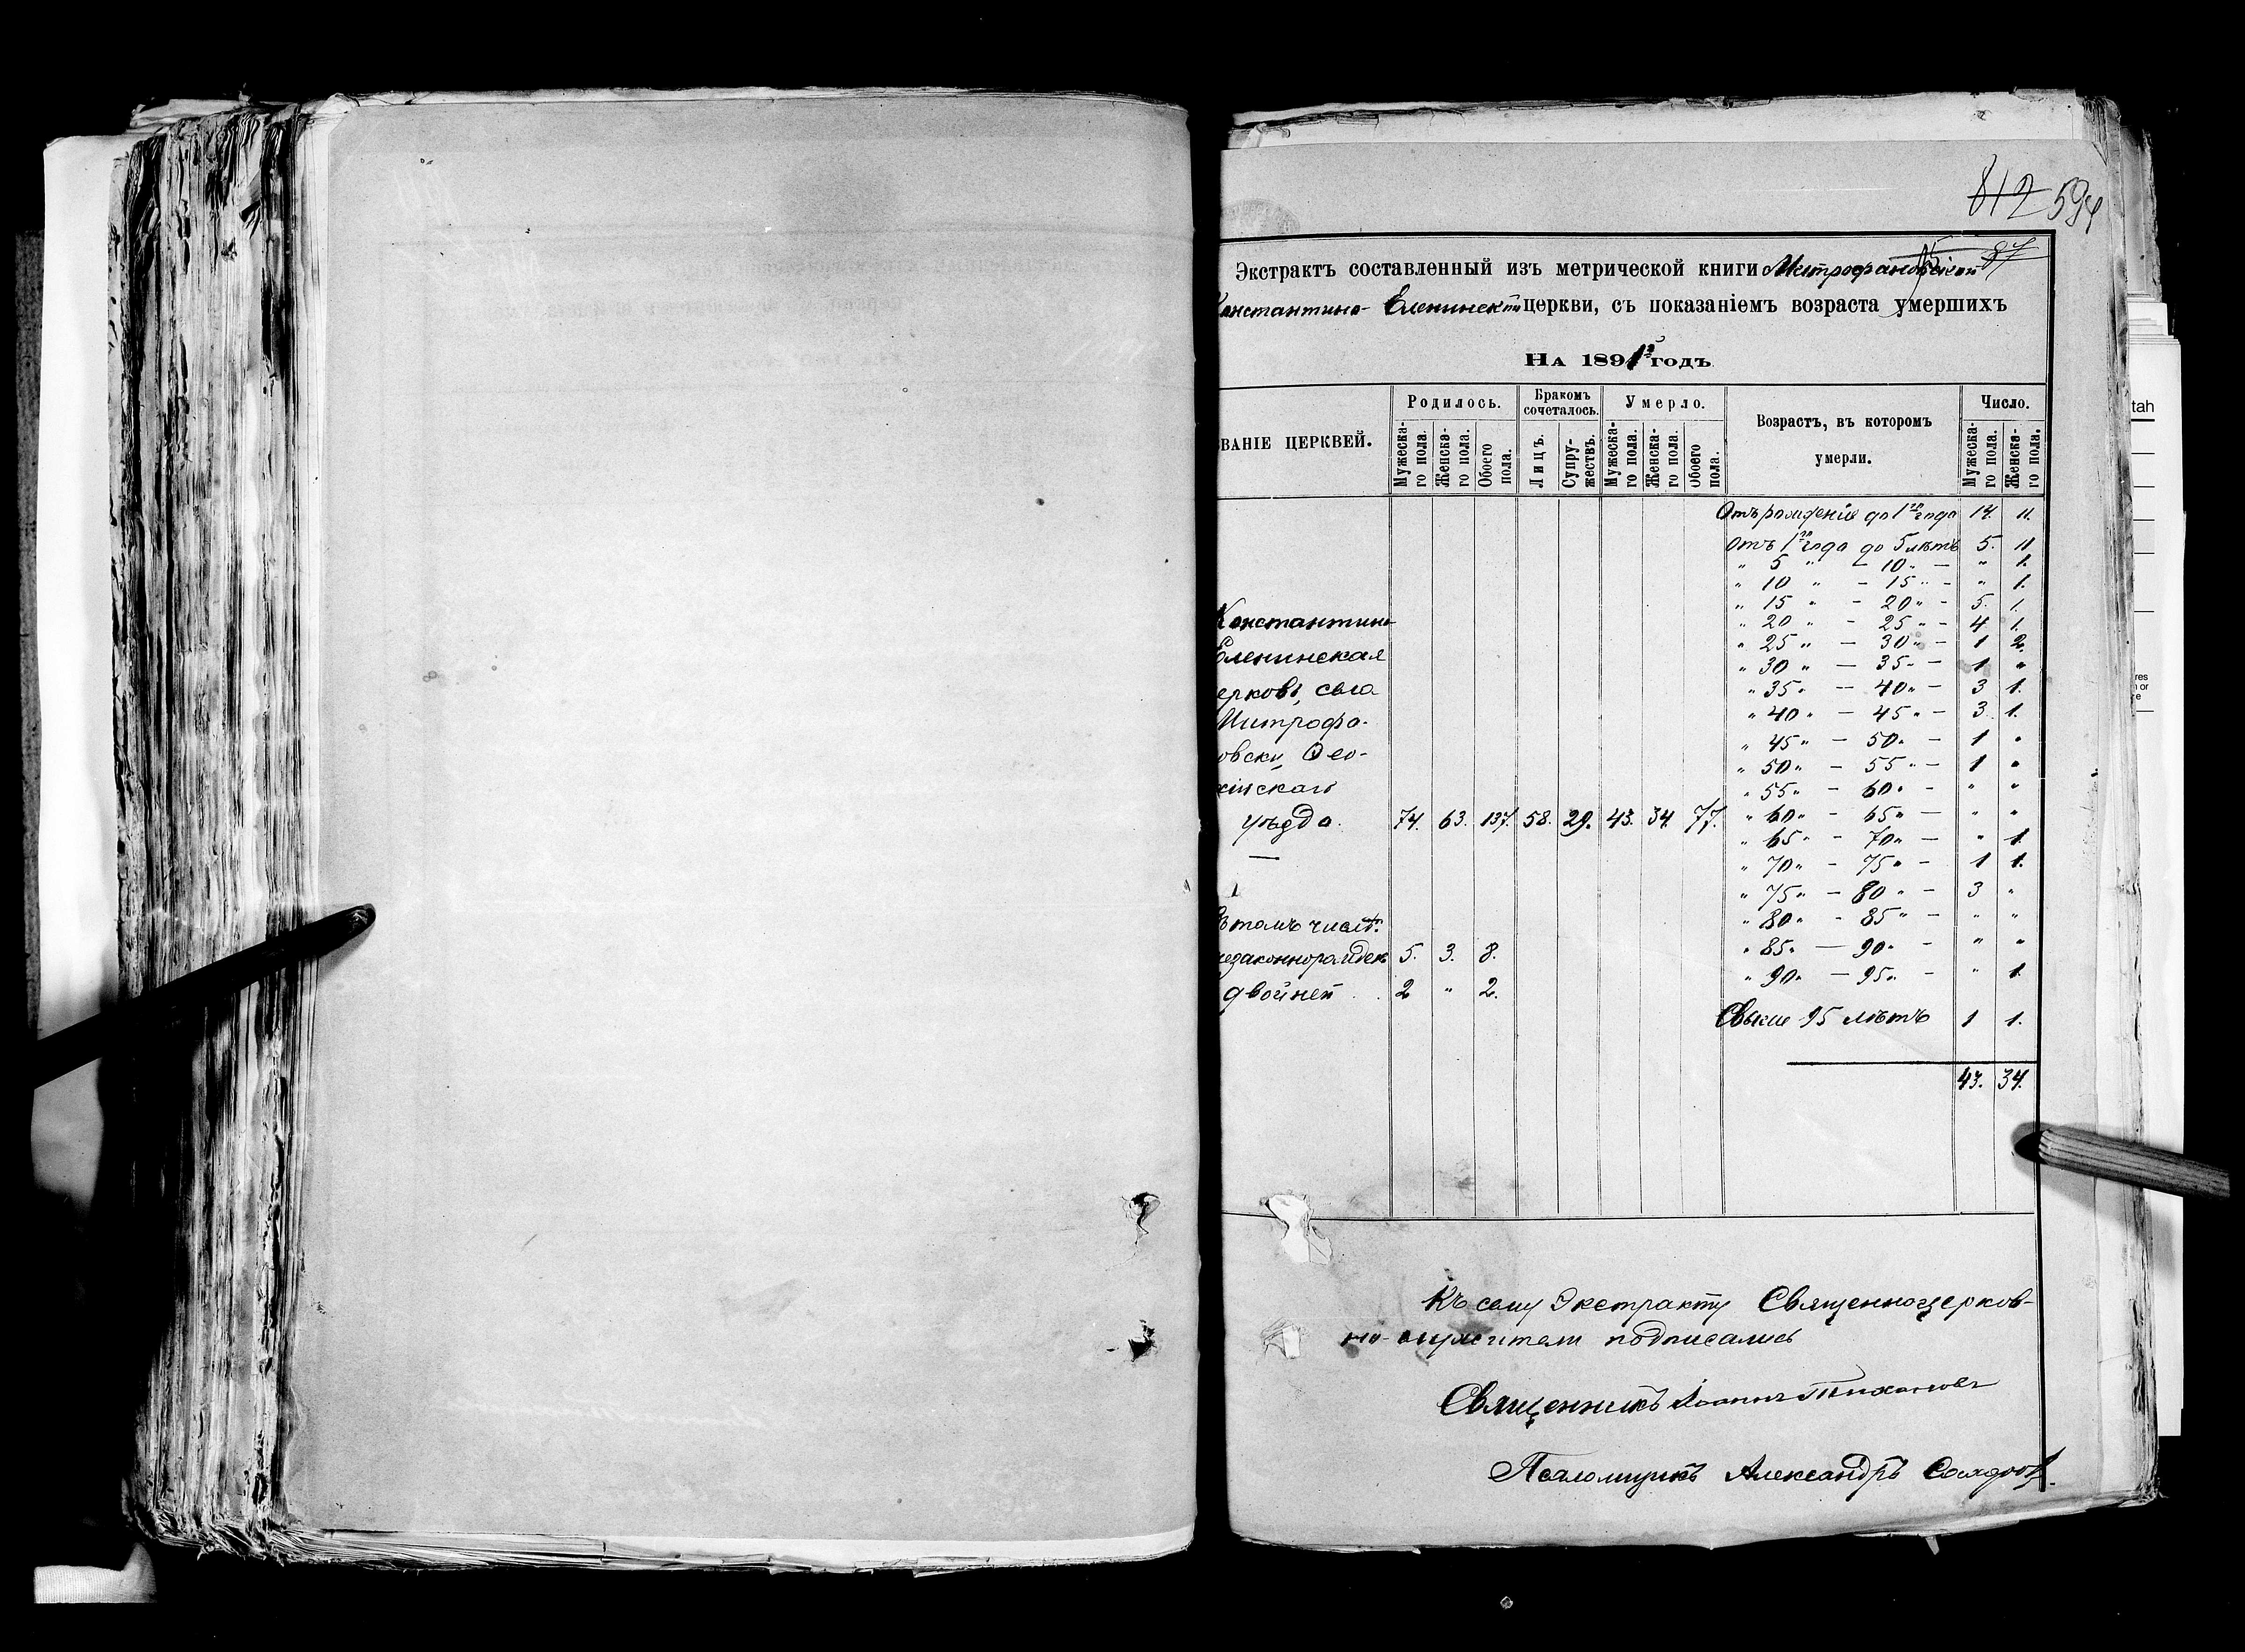 812 594
87
Экстрактъ составленный изъ метрической книги Митрофановской
Константино-Еленинской церкви, съ показаніемъ возраста умершихъ
На 1891й годъ
ВАНІЕ ЦЕРКВЕЙ. Родилось. Бракомъ сочеталось. Умерло. Возрастъ, въ которомъ умерли. Число.
Мужеска-го пола. Женска-го пола. Обоего пола. Лицъ. Супру-жествъ. Мужеска-го пола. Женска-го пола. Обоего пола. Мужеска-го пола. Женска-го пола.
Константино-
Еленинская
ерковь, села
Митрофа-
овски, Ѳео-
скаго
уѣзда. 74. 63. 137. 58. 29. 43. 34. 77.
—
1
въ томъ числѣ.
незаконнорожден 5. 3. 8.
двойней . . 2 " 2.
Отъ рожденія до 1го года 14. 11.
Отъ 1го года до 5 лѣтъ 5. 11
" 5 " – 10 " – " 1.
" 10 " – 15 " – " 1.
" 15 " – 20 " – 5. 1.
" 20 " – 25 " – 4 1.
" 25 " – 30 " – 1 2.
" 30 " – 35 " – 1 "
" 35 " – 40 " – 3 1.
" 40 " – 45 " – 3. 1.
" 45 " – 50 " – 1 "
" 50 " – 55 " – 1 "
" 55 " – 60 " – " "
" 60 " – 65 " – " "
" 65 " – 70 " – " 1.
" 70 " – 75 " – 1 1.
" 75 " – 80 " – 3 "
" 80 " – 85 " – " "
" 85 " – 90 " – " "
" 90 " – 95 " – " 1.
Свыше 95 лѣтъ 1 1.
43. 34.
Къ сему Экстракту Священноцерков-
но-служители подписались
Священникъ Іоаннъ Тихановъ
Псаломщикъ Александръ
tah
res
n or
e